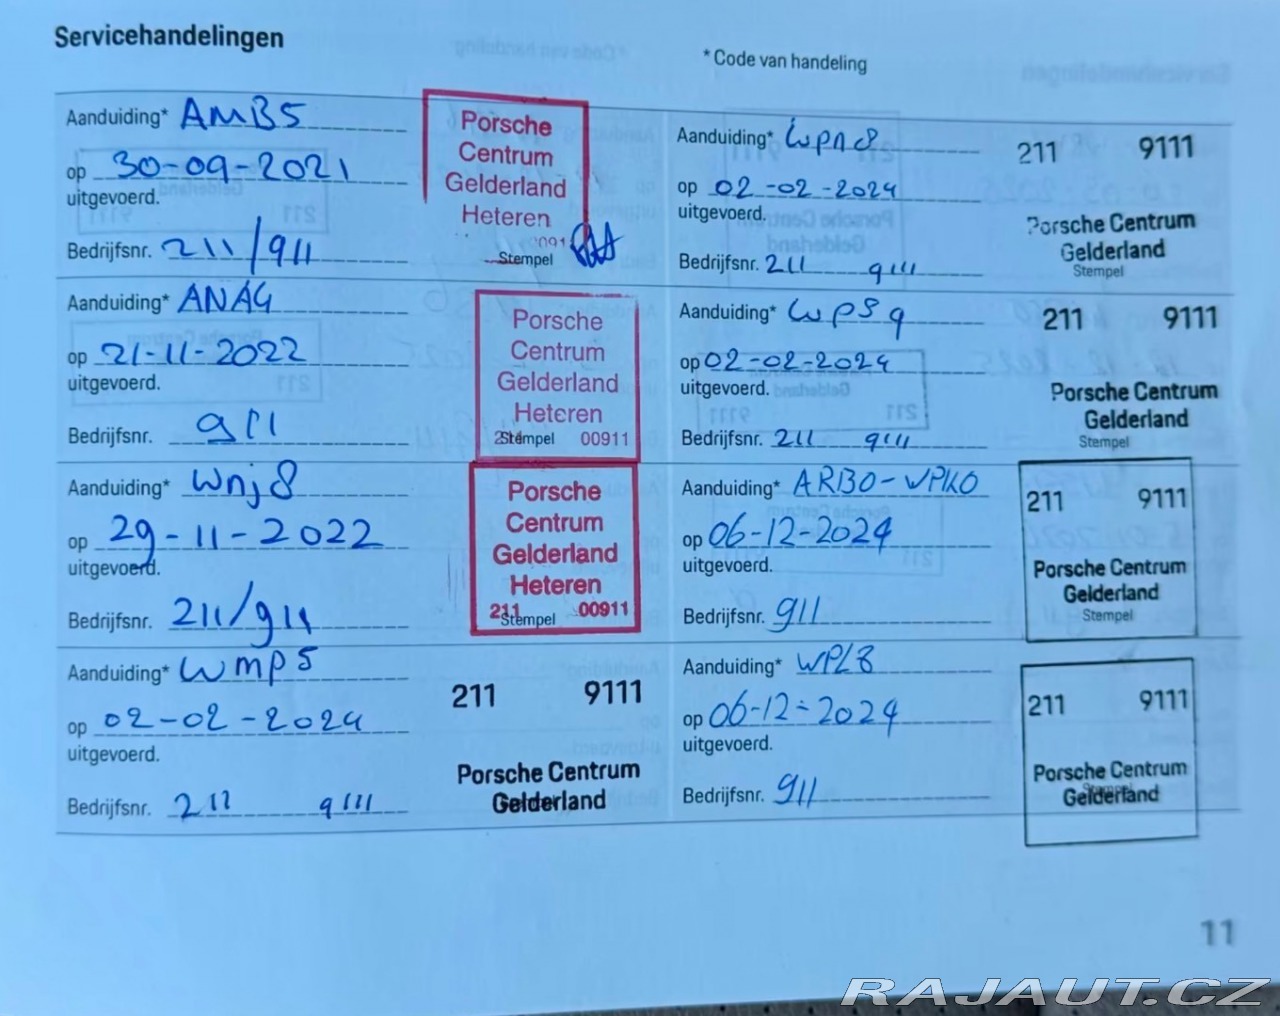 Servicehandelingen
* Code van handeling
Aanduiding* AMB5
op 30-09-2021
uitgevoerd.
Bedrijfsnr. 211/911
Porsche
Centrum
Gelderland
Heteren
0091
Stempel
Aanduiding* ANAG
op 21-11-2022
uitgevoerd.
Bedrijfsnr. 911
Porsche
Centrum
Gelderland
Heteren
Stempel 00911
Aanduiding* WNJ8
op 29-11-2022
uitgevoerd.
Bedrijfsnr. 211/911
Porsche
Centrum
Gelderland
Heteren
211 00911
Stempel
Aanduiding* WMP5
op 02-02-2024
uitgevoerd.
Bedrijfsnr. 211 9111
211 9111
Porsche Centrum
Gelderland
Aanduiding* WPN8
op 02-02-2024
uitgevoerd.
Bedrijfsnr. 211 9111
211 9111
Porsche Centrum
Gelderland
Stempel
Aanduiding* WPS9
op 02-02-2024
uitgevoerd.
Bedrijfsnr. 211 9111
211 9111
Porsche Centrum
Gelderland
Stempel
Aanduiding* ARB0-WPK0
op 06-12-2024
uitgevoerd.
Bedrijfsnr. 911
211 9111
Porsche Centrum
Gelderland
Stempel
Aanduiding* WPL8
op 06-12-2024
uitgevoerd.
Bedrijfsnr. 911
211 9111
Porsche Centrum
Stempel
Gelderland
11
RAJAUT.CZ